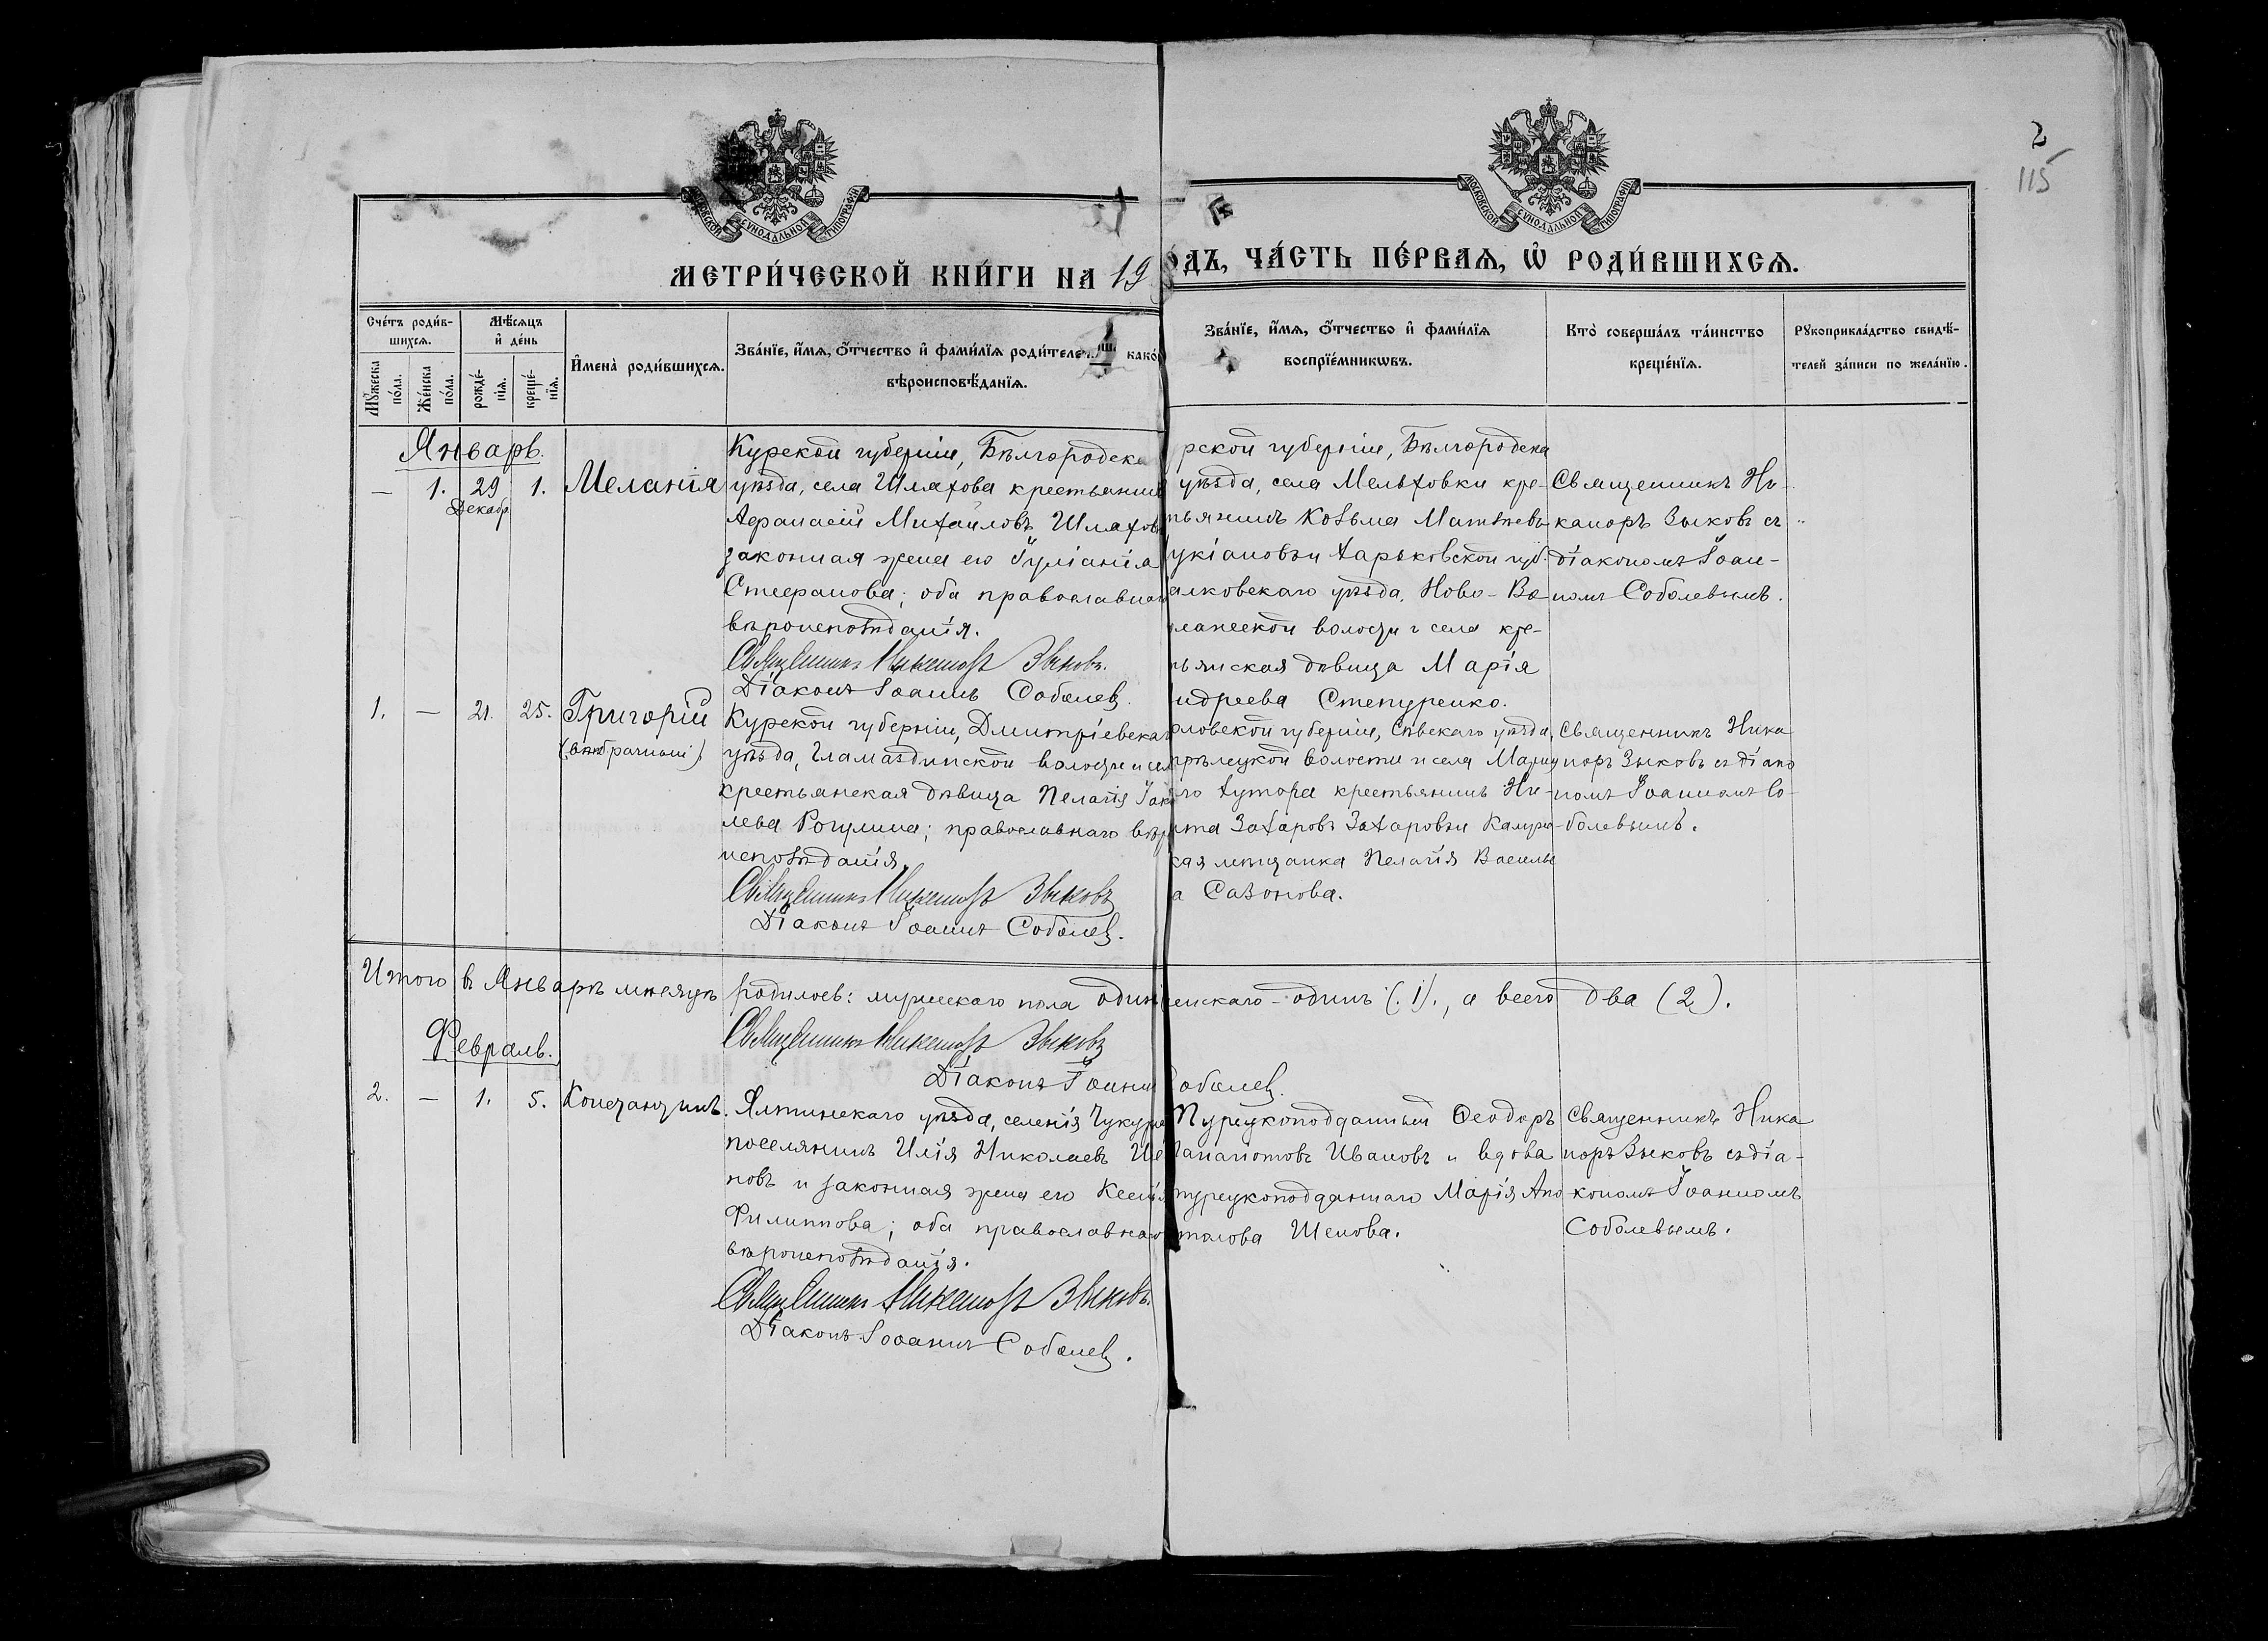 2
115
МОСКОВСКОЙ СѴНОДАЛЬНОЙ ТИПОГРАФІИ
МОСКОВСКОЙ СѴНОДАЛЬНОЙ ТИПОГРАФІИ
МЕТРИ́ЧЕСКОЙ КНИ́ГИ НА 19
ДЪ, ЧА́СТЬ ПЕ́РВАѦ, Ѽ РОДИ́ВШИХСѦ.
Сче́тъ роди́вшихсѧ.
Мꙋ́жеска по́ла.
Же́нска по́ла.
Мѣ́сѧцъ и҆ де́нь
рожде́нїѧ.
креще́нїѧ.
И҆мена̀ роди́вшихсѧ.
Зва́нїе, и҆́мѧ, ѻ҆́тчество и҆ фами́лїѧ роди́теле како́
вѣроисповѣ́данїѧ.
Зва́нїе, и҆́мѧ, ѻ҆́тчество и҆ фами́лїѧ
воспрїе́мникѡвъ.
Кто̀ соверша́лъ та́инство
креще́нїѧ.
Рꙋкоприкла́дство свидѣ́-
телей за́писи по жела́нїю.
Январь.
— 1. 29 Декабр. 1. Меланія
Курской губерніи, Бѣлгородска
уѣзда, села Шляхова крестьянин
Афанасій Михайловъ Шляхов
законная жена его Іуліанія
Стефанова; оба православнаго
вѣроисповѣданія.
Священникъ Никаноръ Зыковъ.
Діаконъ Іоаннъ Соболев.
рской губерніи, Бѣлгородска
уѣзда, села Мелѣховки кре-
тьянинъ Козьма Матѳѣевъ
укіановъ и Харьковской губ.
алковскаго уѣзда, Ново-Во
олости и села кре-
ьянская дѣвица Марія
ндреева Степуренко.
Священникъ Ни-
каноръ Зыковъ съ
діакономъ Іоан-
номъ Соболевымъ.
1. — 21. 25. Григорій
(внѣбрачный)
Курской губерніи, Дмитріевскаг
уѣзда, Гламаздинской волости и сел
крестьянская дѣвица Пелагія Іак
лева Рогулина; православнаго вѣр
исповѣданія.
Священникъ Никаноръ Зыковъ
Діаконъ Іоаннъ Соболев.
рловской губерніи, Сѣвскаго уѣзда,
рѣлецкой волости и села Мариц
го хутора крестьянинъ Ни-
ита Захаровъ Захаровъ и Калуж-
кая мѣщанка Пелагія Василь
а Сазонова.
Священникъ Ника
норъ Зыковъ съ діако
номъ Іоанномъ Со-
болевымъ.
Итого въ Январѣ мѣсяцѣ родилось: мужескаго пола один енскаго – одинъ (1)., а всего два (2).
Священникъ Никаноръ Зыковъ
Діаконъ Іоанн оболев.
Февраль.
2. — 1. 5. Константинъ.
Ялтинскаго уѣзда, селенія Чукур
поселянинъ Илія Николаевъ Ше
новъ и законная жена его Ксенія
Филиппова; оба православнаго
вѣроисповѣданія.
Священникъ Никаноръ Зыковъ.
Діаконъ Іоаннъ Соболев.
Турецкоподданный Ѳеодоръ
Панагіотовъ Ивановъ и вдова
турецкоподданнаго Марія Апо
столова Шенова.
Священникъ Ника
норъ Зыковъ съ діа-
кономъ Іоанномъ
Соболевымъ.